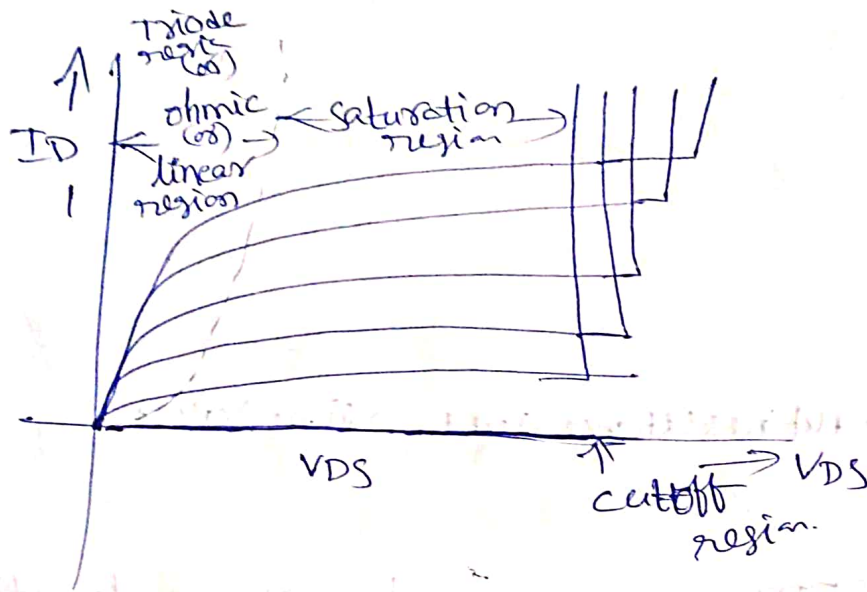 Triode
(or)
ohmic
(or)
linear
region
saturation
region
ID
VDS
VDS
cutoff
region.